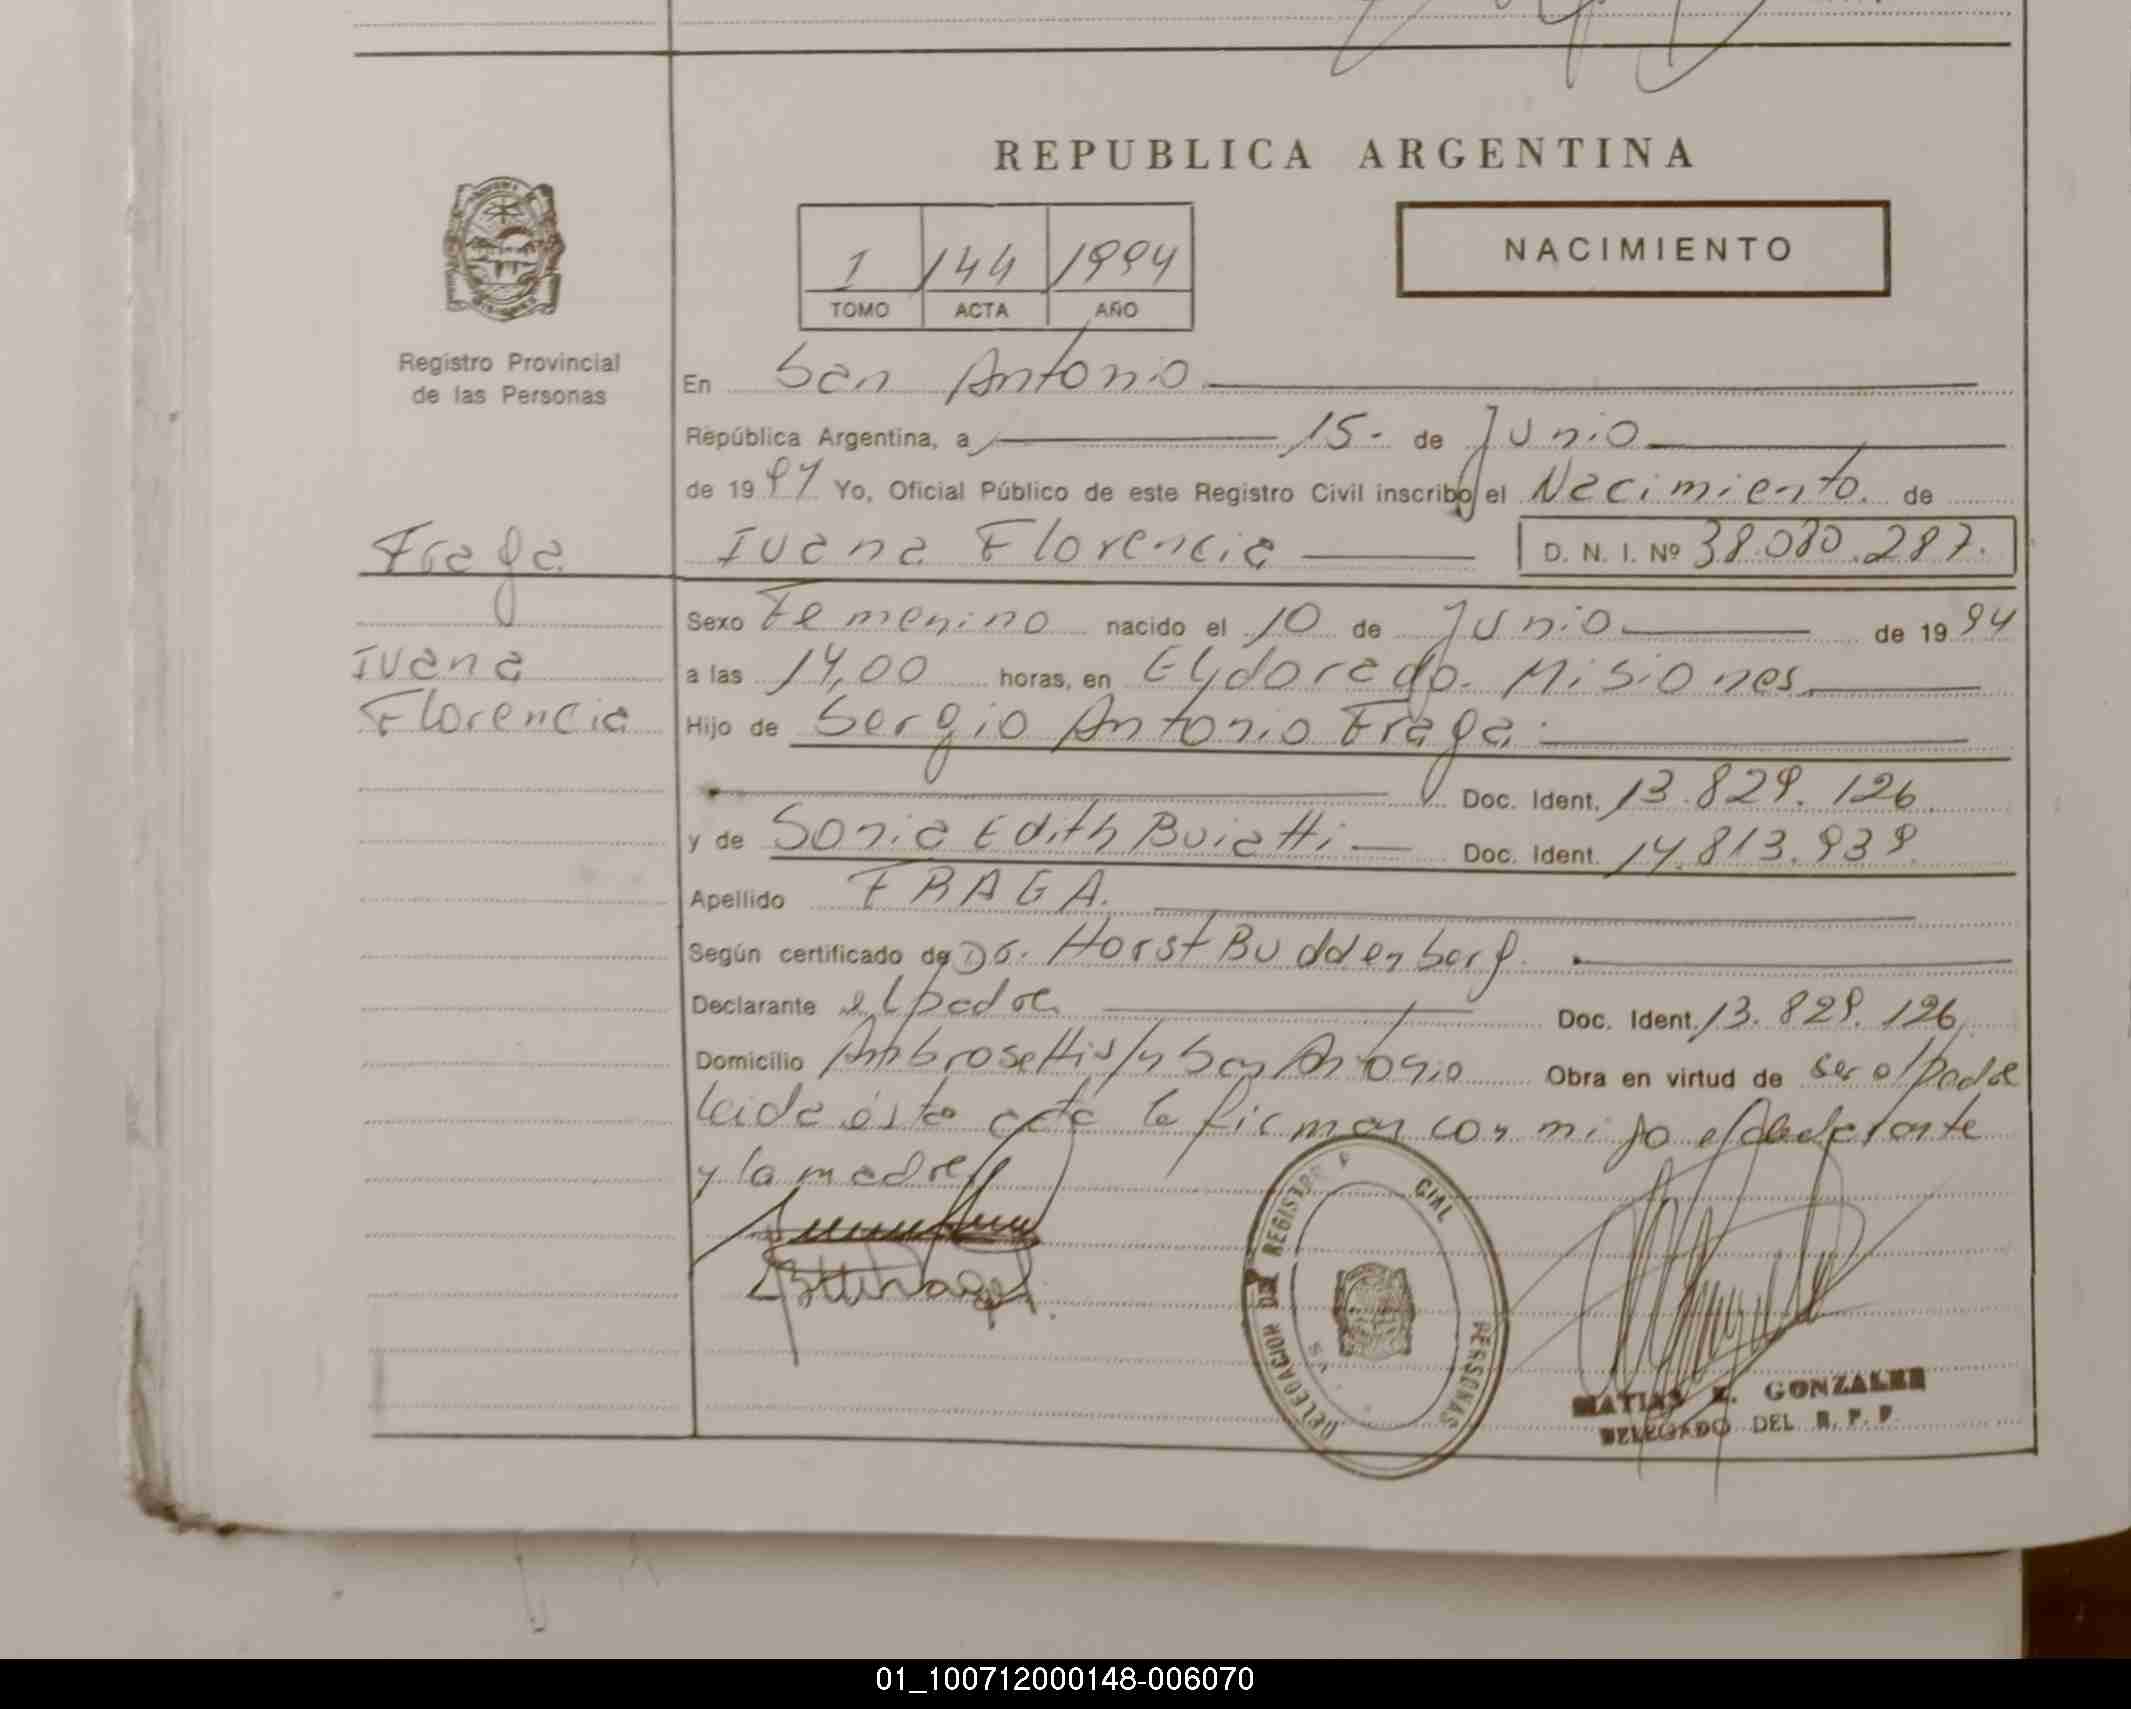 REPUBLICA ARGENTINA
NACIMIENTO
1 144 1994
TOMO ACTA AÑO
Registro Provincial
de las Personas
En San Antonio
República Argentina, a 15- de Junio
de 1994 Yo, Oficial Público de este Registro Civil inscribo el Nacimiento de
Fraga
Ivana
Florencia
Ivana Florencia D. N. I. Nº 38.080.287.
Sexo Femenino nacido el 10 de Junio de 1994
a las 14,00 horas, en Eldorado. Misiones
Hijo de Sergio Antonio Fraga
Doc. Ident. 13.829.126
y de Sonia Edith Buiatti Doc. Ident. 14.813.939
Apellido FRAGA.
Según certificado de Dr. Horst Buddenberg.
Declarante el padre Doc. Ident. 13.829.126
Domicilio Ambrosetti s/n San Antonio Obra en virtud de ser el padre
leida ésta acta la firman con migo el declarante
y la madre
DELEGACION DEL REGISTRO CIAL PERSONAS
MATIAS E. GONZALEZ
DELEGADO DEL R. P. P.
01_100712000148-006070